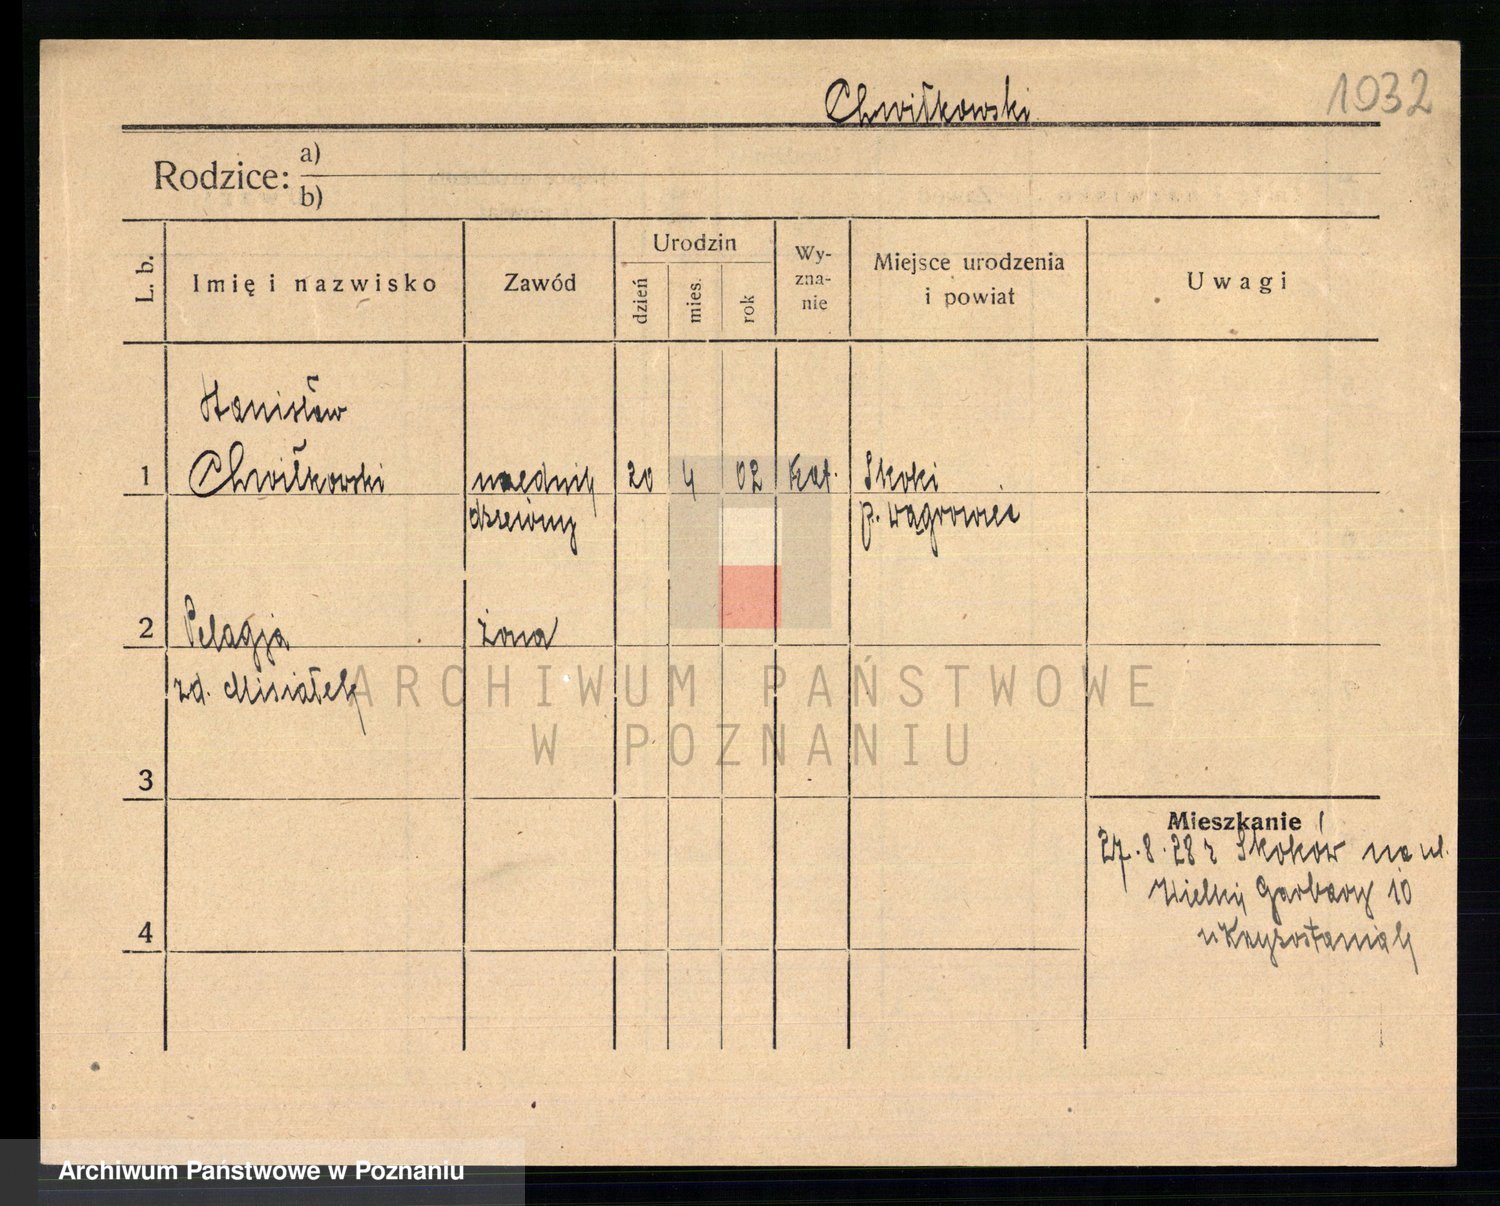 Chwiłkowski
1032
Rodzice: a)
b)
L. b.
Imię i nazwisko
Zawód
Urodzin
dzień
mies.
rok
Wy-
zna-
nie
Miejsce urodzenia
i powiat
Uwagi
Stanisław
1 Chwiłkowski 20 4 02 kat. Skoki
p. Wągrowiec
2 Pelagja żona
zd. Misiałek
3
Mieszkanie
27.8.28 z Skoków na ul.
Wielkie Garbary 10
4
ARCHIWUM PAŃSTWOWE
W POZNANIU
Archiwum Państwowe w Poznaniu